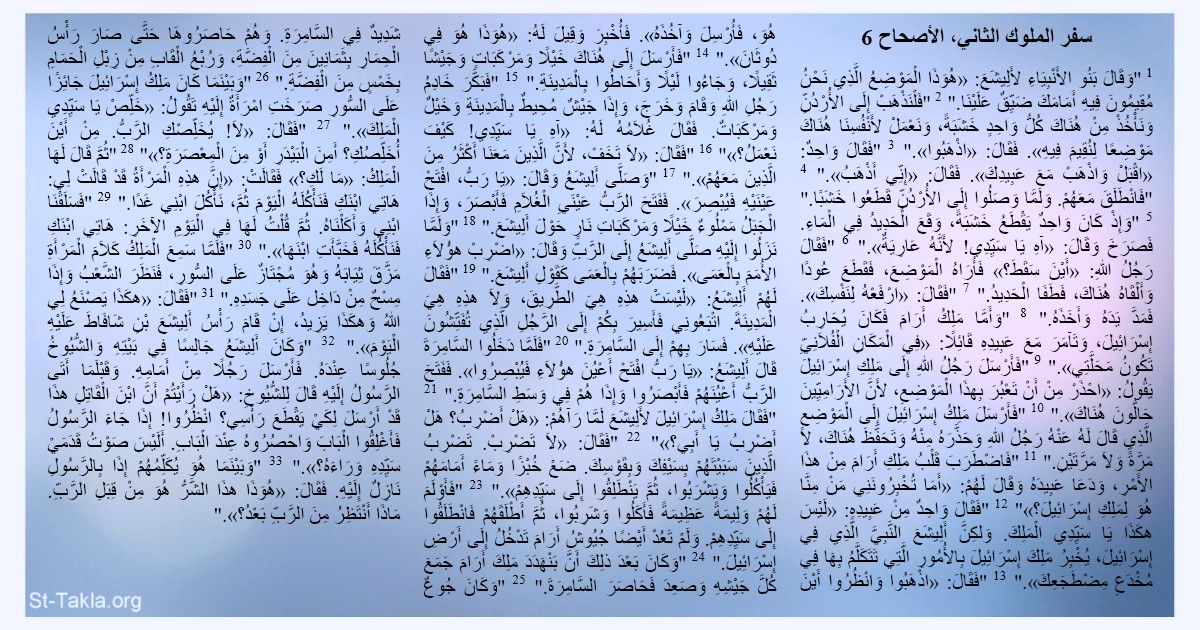 سفر الملوك الثاني، الأصحاح 6
1 "وَقَالَ بَنُو الأَنْبِيَاءِ لأَلِيشَعَ: «هُوَذَا الْمَوْضِعُ الَّذِي نَحْنُ
مُقِيمُونَ فِيهِ أَمَامَكَ ضَيِّقٌ عَلَيْنَا." 2 "فَلْنَذْهَبْ إِلَى الأُرْدُنِّ
وَنَأْخُذْ مِنْ هُنَاكَ كُلُّ وَاحِدٍ خَشَبَةً، وَنَعْمَلْ لأَنْفُسِنَا هُنَاكَ
مَوْضِعًا لِنُقِيمَ فِيهِ». فَقَالَ: «اذْهَبُوا»." 3 "فَقَالَ وَاحِدٌ:
«اقْبَلْ وَاذْهَبْ مَعَ عَبِيدِكَ». فَقَالَ: «إِنِّي أَذْهَبُ»." 4
"فَانْطَلَقَ مَعَهُمْ. وَلَمَّا وَصَلُوا إِلَى الأُرْدُنِّ قَطَعُوا خَشَبًا."
5 "وَإِذْ كَانَ وَاحِدٌ يَقْطَعُ خَشَبَةً، وَقَعَ الْحَدِيدُ فِي الْمَاءِ.
فَصَرَخَ وَقَالَ: «آهِ يَا سَيِّدِي! لأَنَّهُ عَارِيَةٌ»." 6 "فَقَالَ
رَجُلُ اللهِ: «أَيْنَ سَقَطَ؟» فَأَرَاهُ الْمَوْضِعَ، فَقَطَعَ عُودًا
وَأَلْقَاهُ هُنَاكَ، فَطَفَا الْحَدِيدُ." 7 "فَقَالَ: «ارْفَعْهُ لِنَفْسِكَ».
فَمَدَّ يَدَهُ وَأَخَذَهُ." 8 "وَأَمَّا مَلِكُ أَرَامَ فَكَانَ يُحَارِبُ
إِسْرَائِيلَ، وَتَآمَرَ مَعَ عَبِيدِهِ قَائِلًا: «فِي الْمَكَانِ الْفُلاَنِيِّ
تَكُونُ مَحَلَّتِي»." 9 "فَأَرْسَلَ رَجُلُ اللهِ إِلَى مَلِكِ إِسْرَائِيلَ
يَقُولُ: «احْذَرْ مِنْ أَنْ تَعْبُرَ بِهذَا الْمَوْضِعِ، لأَنَّ الأَرَامِيِّينَ
حَالُّونَ هُنَاكَ»." 10 "فَأَرْسَلَ مَلِكُ إِسْرَائِيلَ إِلَى الْمَوْضِعِ
الَّذِي قَالَ لَهُ عَنْهُ رَجُلُ اللهِ وَحَذَّرَهُ مِنْهُ وَتَحَفَّظَ هُنَاكَ، لاَ
مَرَّةً وَلاَ مَرَّتَيْنِ." 11 "فَاضْطَرَبَ قَلْبُ مَلِكِ أَرَامَ مِنْ هذَا
الأَمْرِ، وَدَعَا عَبِيدَهُ وَقَالَ لَهُمْ: «أَمَا تُخْبِرُونَنِي مَنْ مِنَّا
هُوَ لِمَلِكِ إِسْرَائِيلَ؟»" 12 "فَقَالَ وَاحِدٌ مِنْ عَبِيدِهِ: «لَيْسَ
هكَذَا يَا سَيِّدِي الْمَلِكَ. وَلكِنَّ أَلِيشَعَ النَّبِيَّ الَّذِي فِي
إِسْرَائِيلَ، يُخْبِرُ مَلِكَ إِسْرَائِيلَ بِالأُمُورِ الَّتِي تَتَكَلَّمُ بِهَا فِي
مُخْدَعِ مِضْطَجَعِكَ»." 13 "فَقَالَ: «اذْهَبُوا وَانْظُرُوا أَيْنَ
هُوَ، فَأُرْسِلَ وَآخُذَهُ». فَأُخْبِرَ وَقِيلَ لَهُ: «هُوَذَا هُوَ فِي
دُوثَانَ»." 14 "فَأَرْسَلَ إِلَى هُنَاكَ خَيْلًا وَمَرْكَبَاتٍ وَجَيْشًا
ثَقِيلًا، وَجَاءُوا لَيْلًا وَأَحَاطُوا بِالْمَدِينَةِ." 15 "فَبَكَّرَ خَادِمُ
رَجُلِ اللهِ وَقَامَ وَخَرَجَ، وَإِذَا جَيْشٌ مُحِيطٌ بِالْمَدِينَةِ وَخَيْلٌ
وَمَرْكَبَاتٌ. فَقَالَ غُلاَمُهُ لَهُ: «آهِ يَا سَيِّدِي! كَيْفَ
نَعْمَلُ؟»" 16 "فَقَالَ: «لاَ تَخَفْ، لأَنَّ الَّذِينَ مَعَنَا أَكْثَرُ مِنَ
الَّذِينَ مَعَهُمْ»." 17 "وَصَلَّى أَلِيشَعُ وَقَالَ: «يَا رَبُّ، افْتَحْ
عَيْنَيْهِ فَيُبْصِرَ». فَفَتَحَ الرَّبُّ عَيْنَيِ الْغُلاَمِ فَأَبْصَرَ، وَإِذَا
الْجَبَلُ مَمْلُوءٌ خَيْلًا وَمَرْكَبَاتِ نَارٍ حَوْلَ أَلِيشَعَ." 18 "وَلَمَّا
نَزَلُوا إِلَيْهِ صَلَّى أَلِيشَعُ إِلَى الرَّبِّ وَقَالَ: «اضْرِبْ هؤُلاَءِ
الأُمَمَ بِالْعَمَى». فَضَرَبَهُمْ بِالْعَمَى كَقَوْلِ أَلِيشَعَ." 19 "فَقَالَ
لَهُمْ أَلِيشَعُ: «لَيْسَتْ هذِهِ هِيَ الطَّرِيقَ، وَلاَ هذِهِ هِيَ
الْمَدِينَةَ. اتْبَعُونِي فَأَسِيرَ بِكُمْ إِلَى الرَّجُلِ الَّذِي تُفَتِّشُونَ
عَلَيْهِ». فَسَارَ بِهِمْ إِلَى السَّامِرَةِ." 20 "فَلَمَّا دَخَلُوا السَّامِرَةَ
قَالَ أَلِيشَعُ: «يَا رَبُّ افْتَحْ أَعْيُنَ هؤُلاَءِ فَيُبْصِرُوا». فَفَتَحَ
الرَّبُّ أَعْيُنَهُمْ فَأَبْصَرُوا وَإِذَا هُمْ فِي وَسَطِ السَّامِرَةِ." 21
"فَقَالَ مَلِكُ إِسْرَائِيلَ لأَلِيشَعَ لَمَّا رَآهُمْ: «هَلْ أَضْرِبُ؟ هَلْ
أَضْرِبُ يَا أَبِي؟»" 22 "فَقَالَ: «لاَ تَضْرِبْ. تَضْرِبُ
الَّذِينَ سَبَيْتَهُمْ بِسَيْفِكَ وَبِقَوْسِكَ. ضَعْ خُبْزًا وَمَاءً أَمَامَهُمْ
فَيَأْكُلُوا وَيَشْرَبُوا، ثُمَّ يَنْطَلِقُوا إِلَى سَيِّدِهِمْ»." 23 "فَأَوْلَمَ
لَهُمْ وَلِيمَةً عَظِيمَةً فَأَكَلُوا وَشَرِبُوا، ثُمَّ أَطْلَقَهُمْ فَانْطَلَقُوا
إِلَى سَيِّدِهِمْ. وَلَمْ تَعُدْ أَيْضًا جُيُوشُ أَرَامَ تَدْخُلُ إِلَى أَرْضِ
إِسْرَائِيلَ." 24 "وَكَانَ بَعْدَ ذلِكَ أَنَّ بَنْهَدَدَ مَلِكَ أَرَامَ جَمَعَ
كُلَّ جَيْشِهِ وَصَعِدَ فَحَاصَرَ السَّامِرَةَ." 25 "وَكَانَ جُوعٌ
شَدِيدٌ فِي السَّامِرَةِ. وَهُمْ حَاصَرُوهَا حَتَّى صَارَ رَأْسُ
الْحِمَارِ بِثَمَانِينَ مِنَ الْفِضَّةِ، وَرُبْعُ الْقَابِ مِنْ زِبْلِ الْحَمَامِ
بِخَمْسٍ مِنَ الْفِضَّةِ." 26 "وَبَيْنَمَا كَانَ مَلِكُ إِسْرَائِيلَ جَائِزًا
عَلَى السُّورِ صَرَخَتِ امْرَأَةٌ إِلَيْهِ تَقُولُ: «خَلِّصْ يَا سَيِّدِي
الْمَلِكَ»." 27 "فَقَالَ: «لاَ! يُخَلِّصْكِ الرَّبُّ. مِنْ أَيْنَ
أُخَلِّصُكِ؟ أَمِنَ الْبَيْدَرِ أَوْ مِنَ الْمِعْصَرَةِ؟»" 28 "ثُمَّ قَالَ لَهَا
الْمَلِكُ: «مَا لَكِ؟» فَقَالَتْ: «إِنَّ هذِهِ الْمَرْأَةَ قَدْ قَالَتْ لِي:
هَاتِي ابْنَكِ فَنَأْكُلَهُ الْيَوْمَ ثُمَّ، نَأْكُلَ ابْنِي غَدًا." 29 "فَسَلَقْنَا
ابْنِي وَأَكَلْنَاهُ. ثُمَّ قُلْتُ لَهَا فِي الْيَوْمِ الآخَرِ: هَاتِي ابْنَكِ
فَنَأْكُلَهُ فَخَبَّأَتِ ابْنَهَا»." 30 "فَلَمَّا سَمِعَ الْمَلِكُ كَلاَمَ الْمَرْأَةِ
مَزَّقَ ثِيَابَهُ وَهُوَ مُجْتَازٌ عَلَى السُّورِ، فَنَظَرَ الشَّعْبُ وَإِذَا
مِسْحٌ مِنْ دَاخِل عَلَى جَسَدِهِ." 31 "فَقَالَ: «هكَذَا يَصْنَعُ لِي
اللهُ وَهكَذَا يَزِيدُ، إِنْ قَامَ رَأْسُ أَلِيشَعَ بْنِ شَافَاطَ عَلَيْهِ
الْيَوْمَ»." 32 "وَكَانَ أَلِيشَعُ جَالِسًا فِي بَيْتِهِ وَالشُّيُوخُ
جُلُوسًا عِنْدَهُ. فَأَرْسَلَ رَجُلًا مِنْ أَمَامِهِ. وَقَبْلَمَا أَتَى
الرَّسُولُ إِلَيْهِ قَالَ لِلشُّيُوخِ: «هَلْ رَأَيْتُمْ أَنَّ ابْنَ الْقَاتِلِ هذَا
قَدْ أَرْسَلَ لِكَيْ يَقْطَعَ رَأْسِي؟ انْظُرُوا! إِذَا جَاءَ الرَّسُولُ
فَأَغْلِقُوا الْبَابَ وَاحْصُرُوهُ عِنْدَ الْبَابِ. أَلَيْسَ صَوْتُ قَدَمَيْ
سَيِّدِهِ وَرَاءَهُ؟»." 33 "وَبَيْنَمَا هُوَ يُكَلِّمُهُمْ إِذَا بِالرَّسُولِ
نَازِلٌ إِلَيْهِ. فَقَالَ: «هُوَذَا هذَا الشَّرُّ هُوَ مِنْ قِبَلِ الرَّبِّ.
مَاذَا أَنْتَظِرُ مِنَ الرَّبِّ بَعْدُ؟»."
St-Takla.org